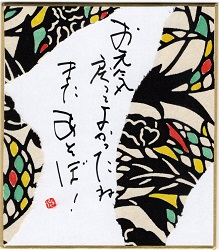 お元気
戻ってよかったね
また あそぼ！